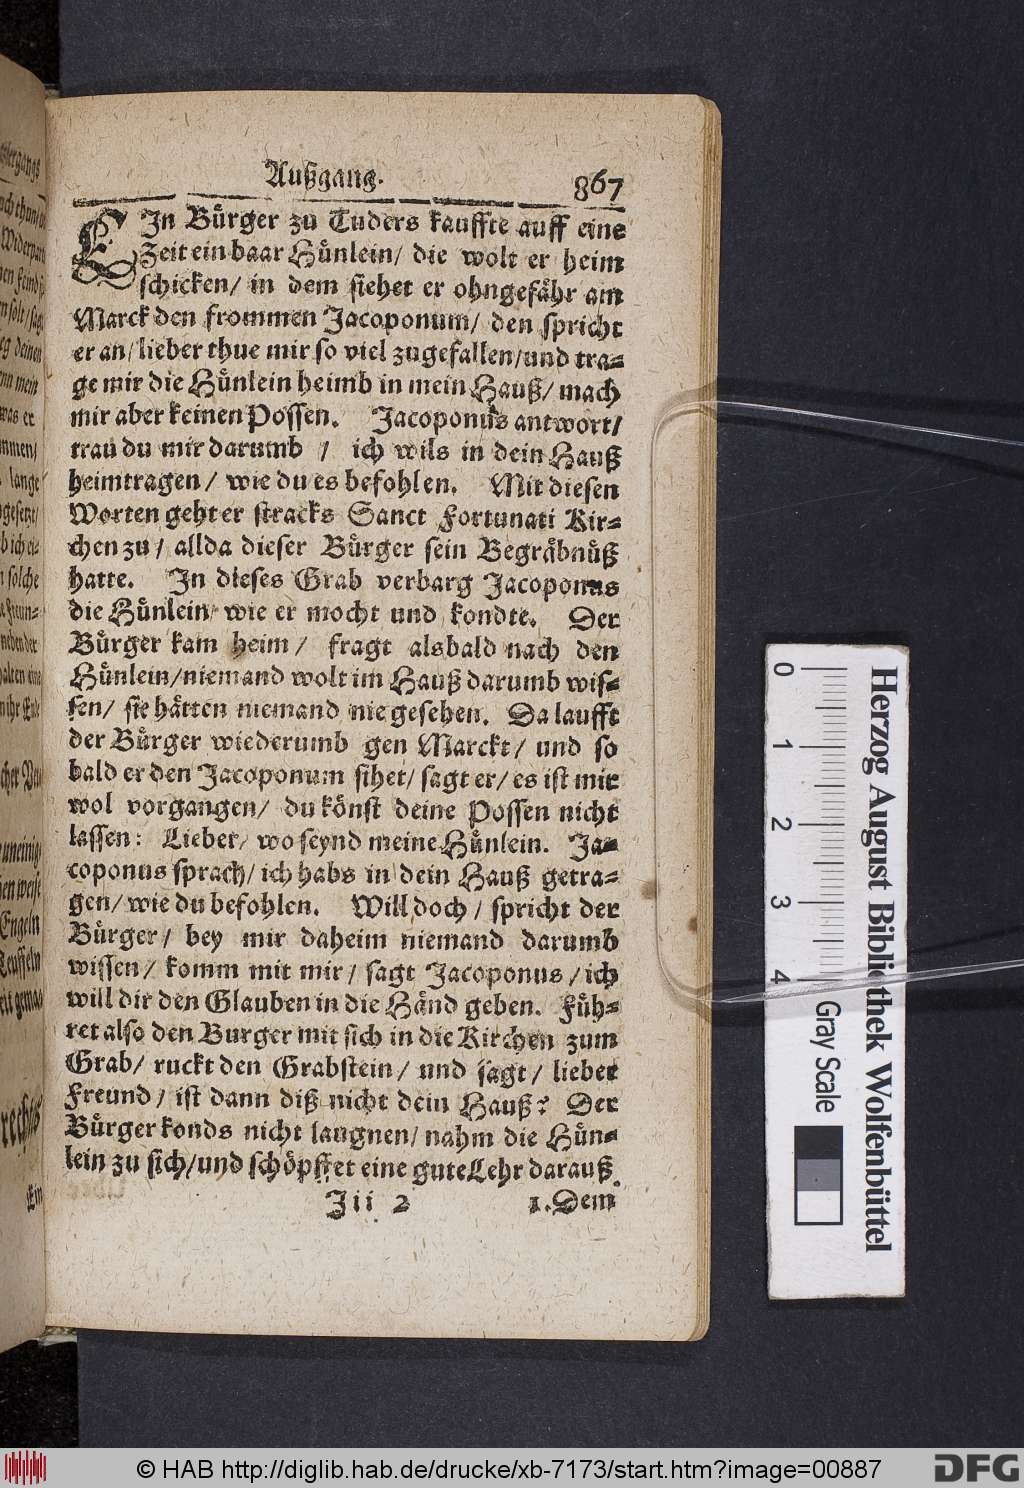 Außgang. 867
EIn Bürger zu Tuders kauffte auff eine
Zeit ein baar Hünlein/ die wolt er heim
schicken/ in dem siehet er ohngefähr am
Marck den frommen Jacoponum/ den spricht
er an/ lieber thue mir so viel zugefallen/und tra-
ge mir die Hünlein heimb in mein Hauß/ mach
mir aber keinen Possen. Jacoponus antwort/
trau du mir darumb / ich wils in dein Hauß
heimtragen/ wie du es befohlen. Mit diesen
Worten geht er stracks Sanct Fortunati Kir-
chen zu/ allda dieser Bürger sein Begräbnüß
hatte. In dieses Grab verbarg Jacoponus
die Hünlein/ wie er mocht und kondte. Der
Bürger kam heim/ fragt alsbald nach den
Hünlein/niemand wolt im Hauß darumb wis-
sen/ sie hätten niemand nie gesehen. Da laufft
der Bürger wiederumb gen Marckt/ und so
bald er den Jacoponum sihet/ sagt er/ es ist mir
wol vorgangen/ du könst deine Possen nicht
lassen: Lieber/ wo seynd meine Hünlein. Ja-
coponus sprach/ ich habs in dein Hauß getra-
gen/ wie du befohlen. Will doch/ spricht der
Bürger/ bey mir daheim niemand darumb
wissen/ komm mit mir/ sagt Jacoponus/ ich
will dir den Glauben in die Händ geben. Füh-
ret also den Burger mit sich in die Kirchen zum
Grab/ ruckt den Grabstein/ und sagt/ lieber
Freund/ ist dann diß nicht dein Hauß? Der
Bürger konds nicht laugnen/ nahm die Hün-
lein zu sich/und schöpffet eine gute Lehr darauß.
Jii 2 1. Dem
Herzog August Bibliothek Wolfenbüttel
0 1 2 3 4 Gray Scale
© HAB http://diglib.hab.de/drucke/xb-7173/start.htm?image=00887
DFG